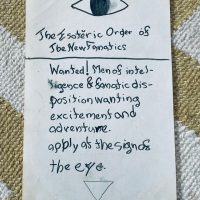 The Esoteric Order of
The New Fanatics
Wanted! Men of intel-
ligence & fanatic dis-
position wanting
excitement and
adventure.
apply at the sign of
the eye.